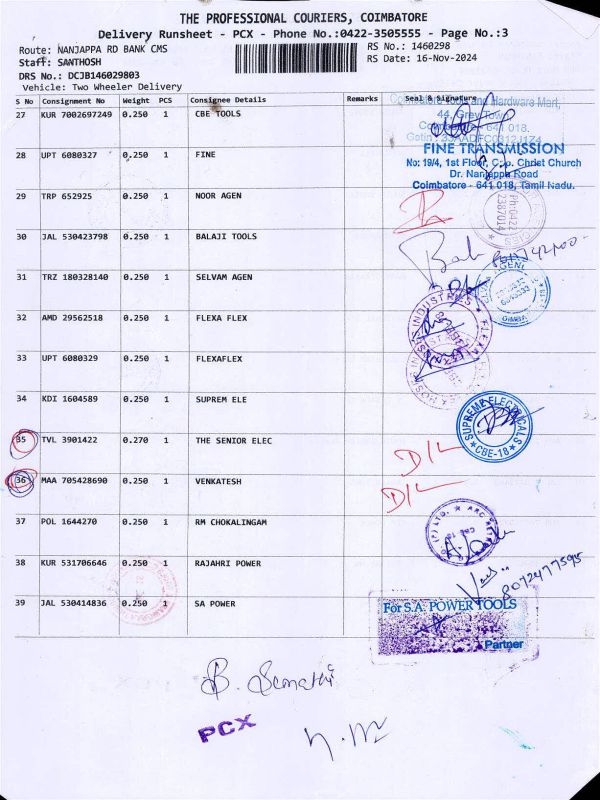 THE PROFESSIONAL COURIERS, COIMBATORE
Delivery Runsheet - PCX - Phone No.:0422-3505555 - Page No.:3
Route: NANJAPPA RD BANK CMS RS No.: 1460298
Staff: SANTHOSH RS Date: 16-Nov-2024
DRS No.: DCJB146029803
Vehicle: Two Wheeler Delivery
S No Consignment No Weight PCS Consignee Details Remarks Seal & Signature
27 KUR 7002697249 0.250 1 CBE TOOLS
Tools and Hardware Mart,
44, Grey Town,
641 018.
28 UPT 6080327 0.250 1 FINE
FINE TRANSMISSION
No: 19/4, 1st Floor, C.p. Christ Church
Dr. Nanjappa Road
Coimbatore - 641 018, Tamil Nadu.
29 TRP 652925 0.250 1 NOOR AGEN
Ph:0422
2387014
30 JAL 530423798 0.250 1 BALAJI TOOLS
31 TRZ 180328140 0.250 1 SELVAM AGEN
32 AMD 29562518 0.250 1 FLEXA FLEX
33 UPT 6080329 0.250 1 FLEXAFLEX
34 KDI 1604589 0.250 1 SUPREM ELE
SUPREME ELECTRICALS
CBE-18
35 TVL 3901422 0.270 1 THE SENIOR ELEC
D/L
36 MAA 705428690 0.250 1 VENKATESH
D/L
37 POL 1644270 0.250 1 RM CHOKALINGAM
38 KUR 531706646 0.250 1 RAJAHRI POWER
8072477595
39 JAL 530414836 0.250 1 SA POWER
For S.A. POWER TOOLS
Partner
PCX